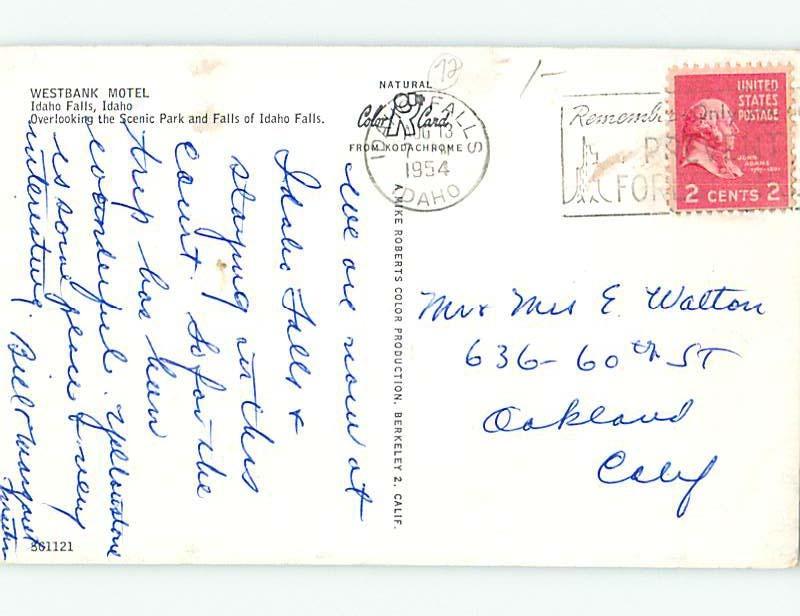 WESTBANK MOTEL
Idaho Falls, Idaho
Overlooking the Scenic Park and Falls of Idaho Falls.
NATURAL
Color Card
FROM KODACHROME
A MIKE ROBERTS COLOR PRODUCTION, BERKELEY 2, CALIF.
S61121
12
1-
IDAHO FALLS
AUG 13
1954
IDAHO
Remember Only
FOR
UNITED
STATES
POSTAGE
JOHN
ADAMS
1797-1801
2 CENTS 2
We are now at
Idaho Falls &
staying in this
court. So far the
trip has been
wonderful. Yellowstone
is some place & very
interesting. Bill & Margaret
Mr & Mrs E. Walton
636-60th ST
Oakland
Calif